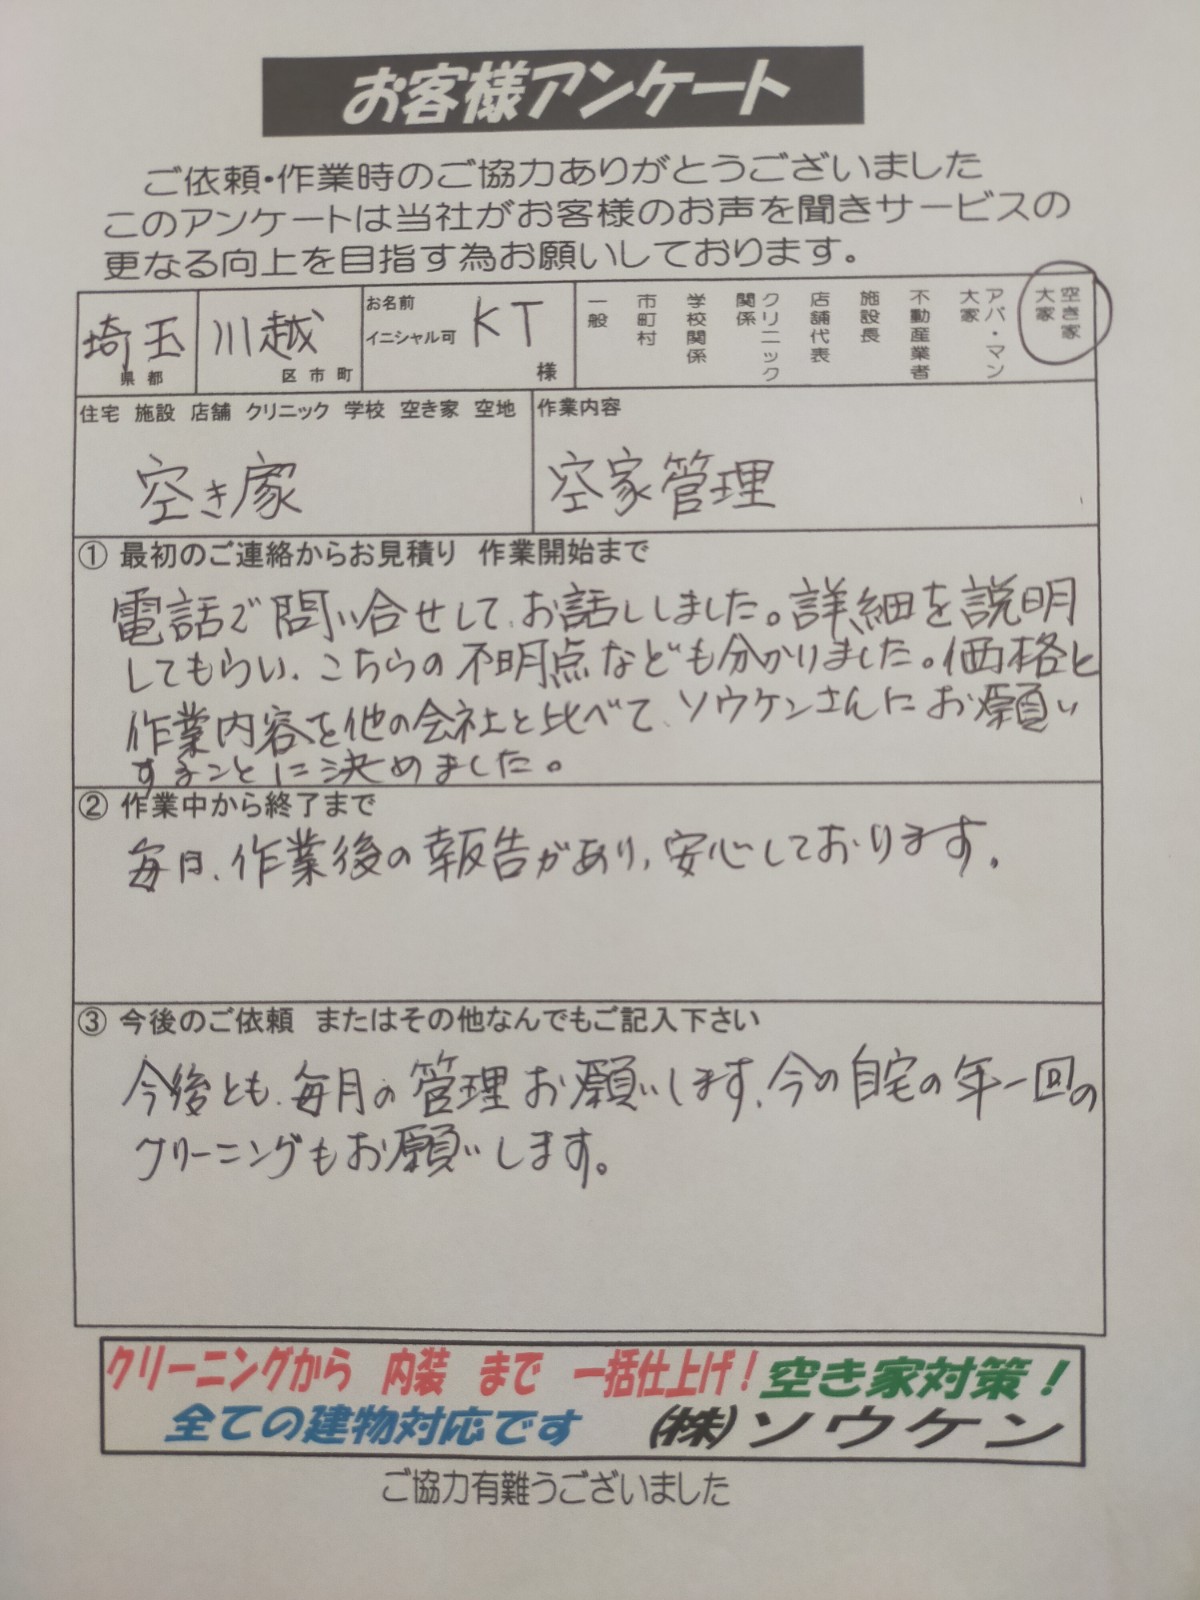 お客様アンケート
ご依頼・作業時のご協力ありがとうございました
このアンケートは当社がお客様のお声を聞きサービスの
更なる向上を目指す為お願いしております。
埼玉 県 都
川越 区 市 町
お名前
イニシャル可
KT 様
一般
市町村
学校関係
クリニック関係
店舗代表
施設長
不動産業者
アパ・マン大家
空き家大家
住宅 施設 店舗 クリニック 学校 空き家 空地
空き家
作業内容
空家管理
① 最初のご連絡からお見積り 作業開始まで
電話で問い合せして、お話ししました。詳細を説明
してもらい、こちらの不明点なども分かりました。価格と
作業内容を他の会社と比べて、ソウケンさんにお願い
することに決めました。
② 作業中から終了まで
毎日、作業後の報告があり、安心しております。
③ 今後のご依頼 またはその他なんでもご記入下さい
今後とも、毎月の管理お願いします、今の自宅の年一回の
クリーニングもお願いします。
クリーニングから 内装 まで 一括仕上げ！空き家対策！
全ての建物対応です (株)ソウケン
ご協力有難うございました